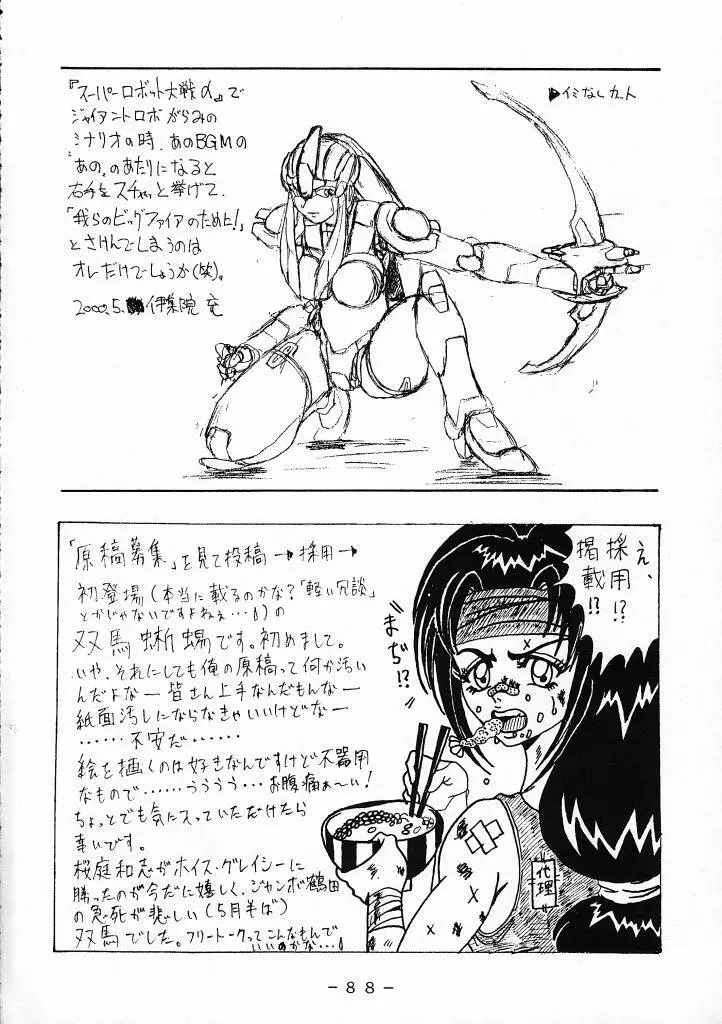 『スーパーロボット大戦α』で
ジャイアントロボがらみの
シナリオの時、あのBGMの
"あの"のあたりになると
右手をスチャッと挙げて、
「我らのビッグファイアのために!」
とさけんでしまうのは
オレだけでしょうか(笑)。
2000.5. 伊集院 竜
▶イミなしカット
「原稿募集」を見て投稿→採用→
初登場(本当に載るのかな?「軽い冗談」
とかじゃないですよねぇ…!)の
双馬蜥蜴です。初めまして。
いや、それにしても俺の原稿って何か汚い
んだよなー皆さん上手なんだもんなー
紙面汚しにならなきゃいいけどなー
……不安だ……
絵を描くのは好きなんですけど不器用
なもので……うううう…お腹痛ぁ~い!
ちょっとでも気に入っていただけたら
幸いです。
桜庭和志がホイス・グレイシーに
勝ったのが今だに嬉しく、ジャンボ鶴田
の急死が悲しい(5月半ば)
双馬でした。フリートークってこんなもんで
いいのかな…!
え、
採用!?
掲載!?
まぢ!?
代理
-88-